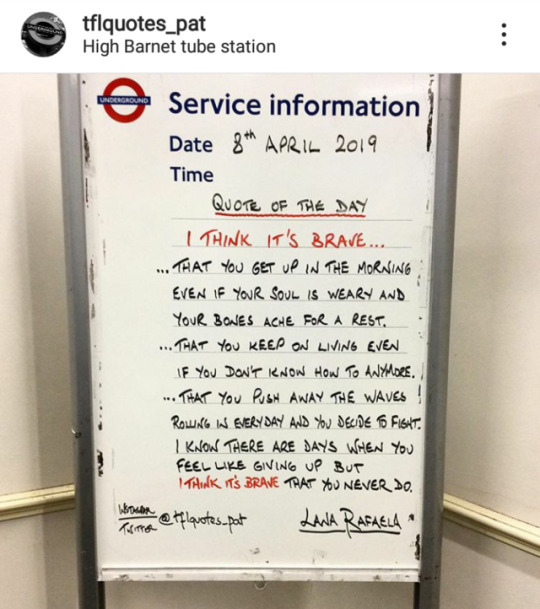 tflquotes_pat
High Barnet tube station
UNDERGROUND
Service information
Date 8th APRIL 2019
Time
QUOTE OF THE DAY
I THINK IT'S BRAVE...
...THAT YOU GET UP IN THE MORNING
EVEN IF YOUR SOUL IS WEARY AND
YOUR BONES ACHE FOR A REST.
...THAT YOU KEEP ON LIVING EVEN
IF YOU DON'T KNOW HOW TO ANYMORE.
...THAT YOU PUSH AWAY THE WAVES
ROLLING IN EVERYDAY AND YOU DECIDE TO FIGHT.
I KNOW THERE ARE DAYS WHEN YOU
FEEL LIKE GIVING UP BUT
I THINK IT'S BRAVE THAT YOU NEVER DO.
INSTAGRAM
TWITTER @tflquotes_pat
LANA RAFAELA